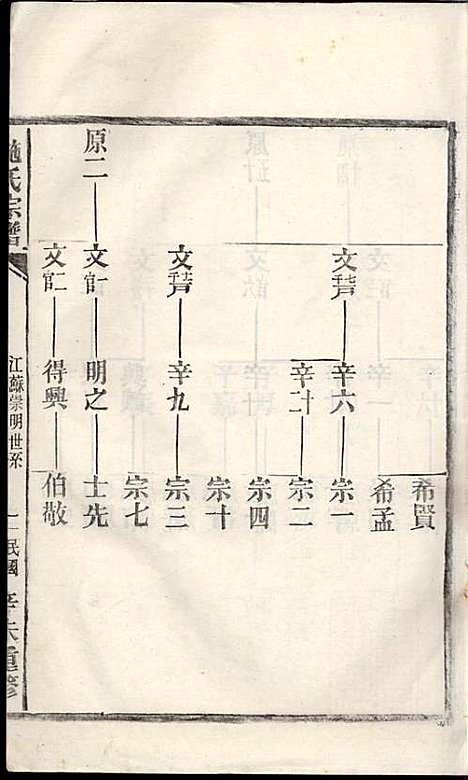 希賢
希孟
文
辛六
宗一
辛二十
宗二
宗四
宗十
文
辛九
宗三
宗七
原二
文
明之
士先
文
得興
伯敬
施氏宗譜
江蘇崇明世系
民國辛未重修